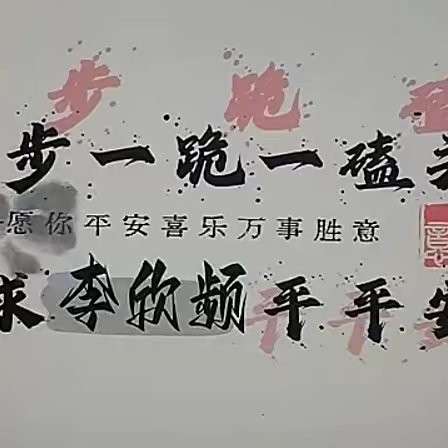 步 跪
步一跪一磕
愿你平安喜乐万事胜意
求李欣频平平